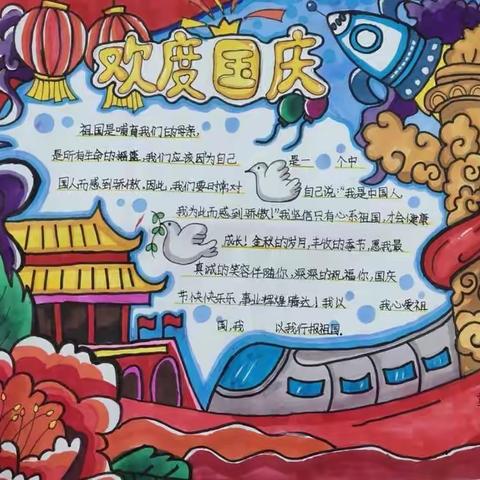 欢度国庆
祖国是哺育我们的母亲,
是所有生命的摇篮,我们应该因为自己 是一 个中
国人而感到骄傲,因此,我们要日常对 自己说:“我是中国人,
我为此而感到骄傲!”我坚信只有心系祖国,才会健康
成长!金秋的岁月,丰收的季节,愿我最
真诚的笑容伴随你,深深的祝福你,国庆
节快快乐乐,事业辉煌腾达!我以 我心爱祖
国,我 以我行报祖国.